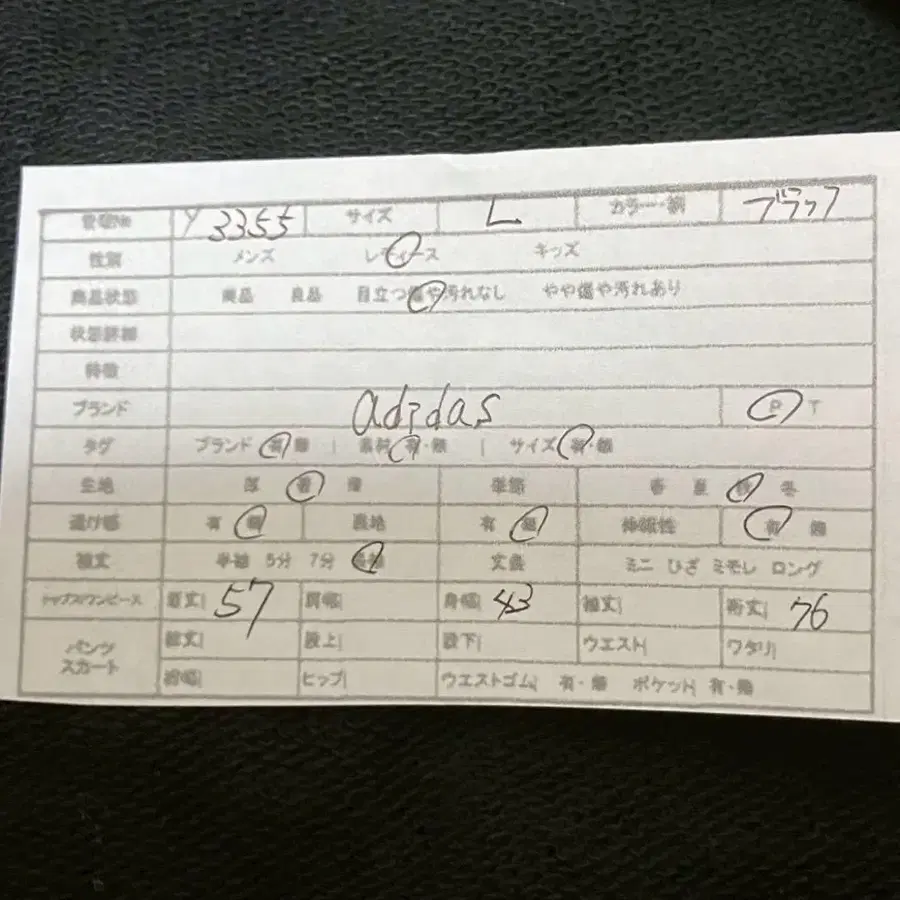 管理No Y 3355 サイズ L カラー・柄 ブラック
性別 メンズ レディース キッズ
商品状態 美品 良品 目立つ傷や汚れなし やや傷や汚れあり
状態詳細
特徴
ブランド adidas P T
タグ ブランド 有・無 | 素材 有・無 | サイズ 有・無
生地 厚 普 薄 季節 春 夏 秋 冬
透け感 有 無 裏地 有 無 伸縮性 有 無
袖丈 半袖 5分 7分 長袖 丈感 ミニ ひざ ミモレ ロング
トップス/ワンピース 着丈| 57 肩幅| 身幅| 43 袖丈| 裄丈| 76
パンツ スカート 総丈| 股上| 股下| ウエスト| ワタリ|
裾幅| ヒップ| ウエストゴム| 有・無 ポケット| 有・無